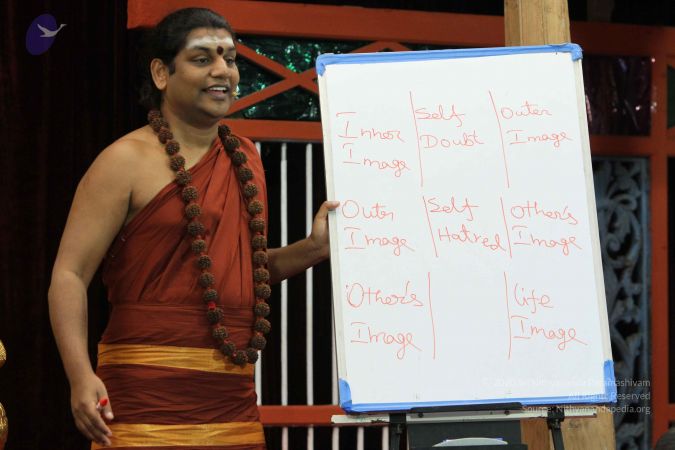 Inner Self Outer
Image Doubt Image
Outer Self Other's
Image Hatred Image
Other's Life
Image Image
All Rights Reserved
Source: Nithyanandapedia.org